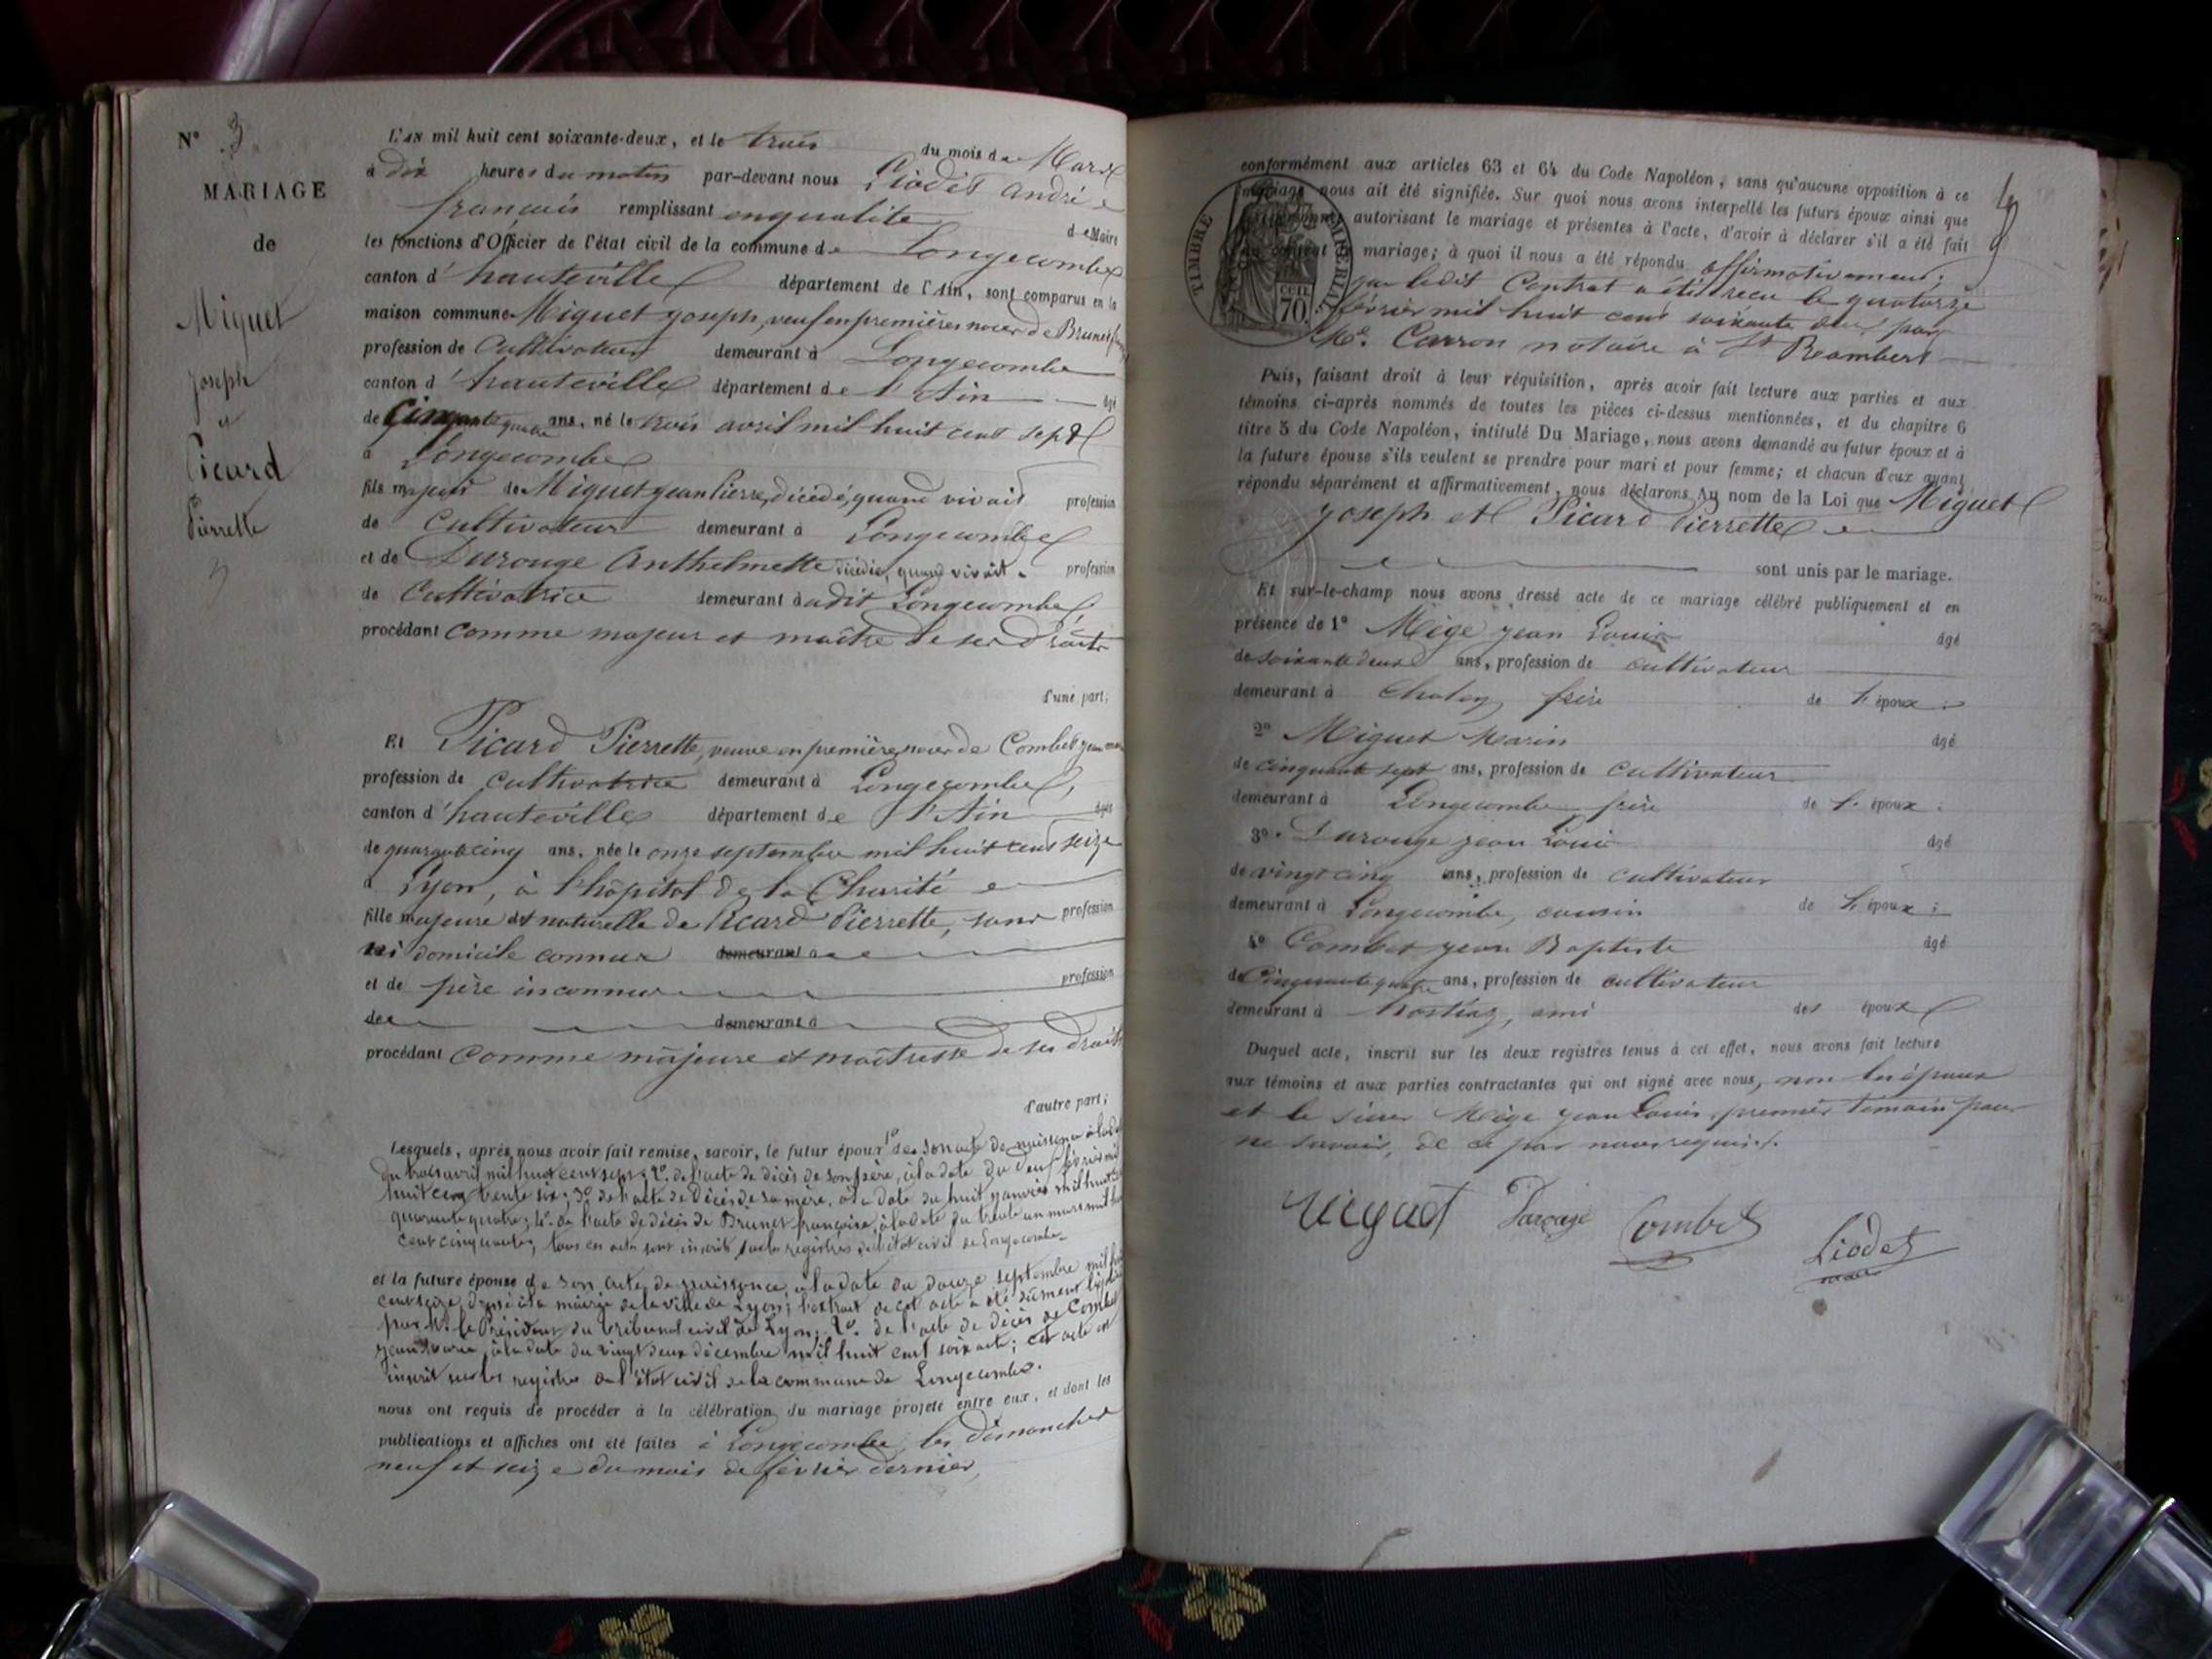 N° 3
MARIAGE
de
Miguet
joseph
et
Picard
Pierrette
3
L'an mil huit cent soixante-deux, et le trois du mois de Mars
à dix heures du matin par-devant nous Liodet andré
françois remplissant en qualité de Maire
les fonctions d'Officier de l'état civil de la commune de Longecombe
canton d'hauteville département de l'Ain, sont comparus en la
maison commune Miguet joseph, veuf en premières noces de Brunet
profession de Cultivateur demeurant à Longecombe
canton d'hauteville département de l'Ain âgé
de Cinquante quatre ans, né le trois avril mil huit cent sept
à Longecombe
fils majeur de Miguet jean Pierre, décédé, quand vivait profession
de Cultivateur demeurant à Longecombe
et de Durouge Anthelmette décédée, quand vivait profession
de Cultivatrice demeurant à udit Longecombe,
procédant comme majeur et maître de ses droits
d'une part;
Et Picard Pierrette, veuve en premières noces de Combet jean
profession de cultivatrice demeurant à Longecombe,
canton d'hauteville département de l'Ain âgée
de quarante cinq ans, née le onze septembre mil huit cent seize
à Lyon, à l'hôpital de la Charité
fille majeure et naturelle de Picard Pierrette, sans profession
ni domicile connus demeurant à
et de père inconnu profession
de demeurant à
procédant comme majeure et maîtresse de ses droits
d'autre part;
Lesquels, après nous avoir fait remise, savoir, le futur époux 1° de son acte de naissance à la date
du trois avril mil huit cent sept; 2°. de l'acte de décès de son père, à la date du neuf février mil
huit cent trente six; 3° de l'acte de décès de sa mère, à la date du huit janvier mil huit cent
quarante quatre; 4°. de l'acte de décès de Brunet françoise, à la date du trente un mars mil huit
cent cinquante; tous ces actes sont inscrits sur les registres de l'état civil de Longecombe.
et la future épouse de son acte de naissance, à la date du douze septembre mil huit
cent seize, dressé à la mairie de la ville de Lyon; l'extrait de cet acte a été dûment légalisé
par Mr. le Président du tribunal civil de Lyon; 2°. de l'acte de décès de Combet
jean Marie, à la date du vingt deux décembre mil huit cent soixante; cet acte est
inscrit sur les registres de l'état civil de la commune de Longecombe.
nous ont requis de procéder à la célébration du mariage projeté entre eux, et dont les
publications et affiches ont été faites à Longecombe, les dimanches
neuf et seize du mois de février dernier,
conformément aux articles 63 et 64 du Code Napoléon, sans qu'aucune opposition à ce
mariage nous ait été signifiée. Sur quoi nous avons interpellé les futurs époux ainsi que
les personnes autorisant le mariage et présentes à l'acte, d'avoir à déclarer s'il a été fait
un contrat de mariage; à quoi il nous a été répondu affirmativement;
TIMBRE IMPERIAL
70 cen
que ledit Contrat a été reçu le quatorze
février mil huit cent soixante deux par
Me. Carron notaire à St Rambert
Puis, faisant droit à leur réquisition, après avoir fait lecture aux parties et aux
témoins ci-après nommés de toutes les pièces ci-dessus mentionnées, et du chapitre 6
titre 5 du Code Napoléon, intitulé Du Mariage, nous avons demandé au futur époux et à
la future épouse s'ils veulent se prendre pour mari et pour femme; et chacun d'eux ayant
répondu séparément et affirmativement, nous déclarons Au nom de la Loi que Miguet
joseph et Picard Pierrette
sont unis par le mariage.
Et sur-le-champ nous avons dressé acte de ce mariage célébré publiquement et en
présence de 1° Mège jean Louis âgé
de soixante deux ans, profession de cultivateur
demeurant à Chaley frère de l'époux;
2° Miguet Marin âgé
de cinquante sept ans, profession de cultivateur
demeurant à Longecombe frère de l'époux;
3° Durouge jean Louis âgé
de vingt cinq ans, profession de cultivateur
demeurant à Longecombe, cousin de l'époux;
4° Combet jean Baptiste âgé
de Cinquante quatre ans, profession de cultivateur
demeurant à hostiaz, ami des époux
Duquel acte, inscrit sur les deux registres tenus à cet effet, nous avons fait lecture
aux témoins et aux parties contractantes qui ont signé avec nous, non les époux
et le sieur Mège jean Louis, premier témoin pour
ne savoir, de ce par nous requis.
Miguet Combet Liodet